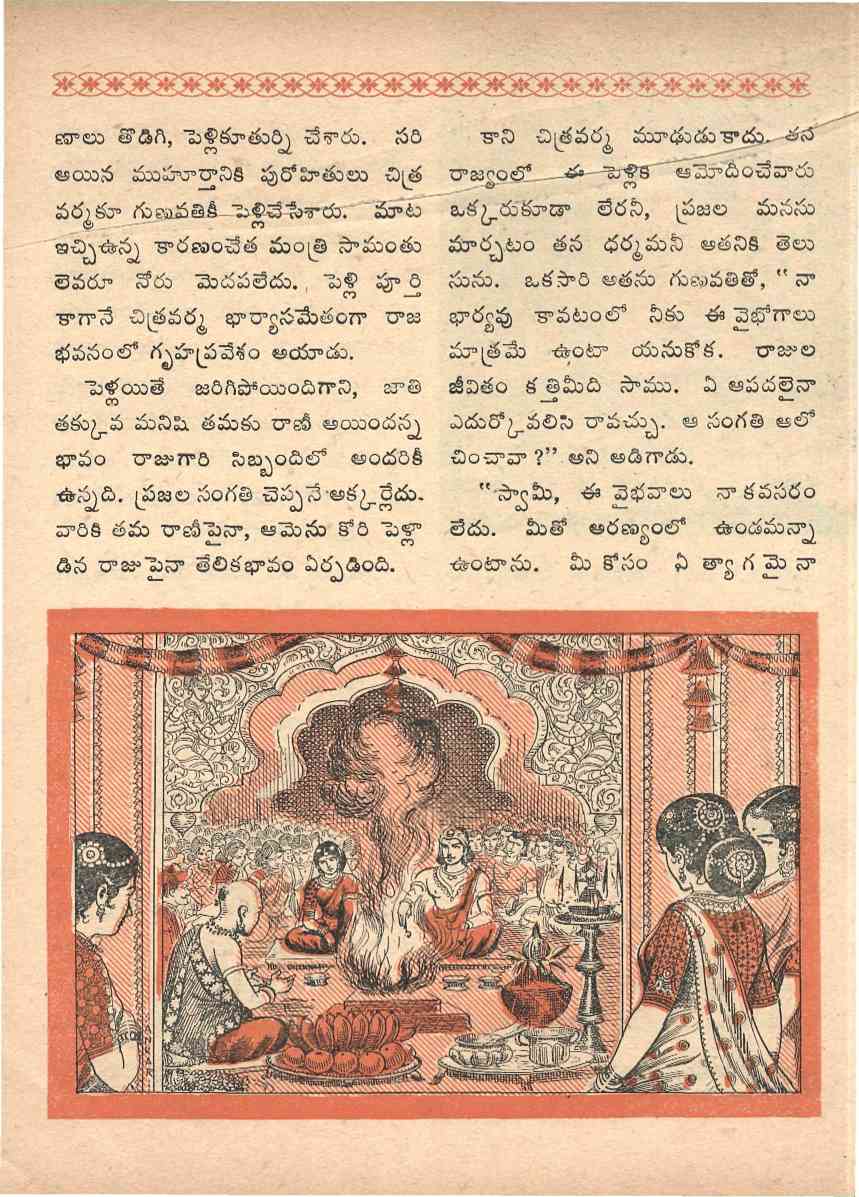 ణాలు తొడిగి, పెళ్లికూతుర్ని చేశారు. సరి
అయిన ముహూర్తానికి పురోహితులు చిత్ర
వర్మకూ గుణవతికీ పెళ్లిచేసేశారు. మాట
ఇచ్చిఉన్న కారణంచేత మంత్రి సామంతు
లెవరూ నోరు మెదపలేదు. పెళ్లి పూర్తి
కాగానే చిత్రవర్మ భార్యాసమేతంగా రాజ
భవనంలో గృహప్రవేశం అయాడు.
పెళ్లయితే జరిగిపోయిందిగాని, జాతి
తక్కువ మనిషి తమకు రాణీ అయిందన్న
భావం రాజుగారి సిబ్బందిలో అందరికీ
ఉన్నది. ప్రజల సంగతి చెప్పనే అక్కర్లేదు.
వారికి తమ రాణీపైనా, ఆమెను కోరి పెళ్లా
డిన రాజుపైనా తేలికభావం ఏర్పడింది.
కాని చిత్రవర్మ మూఢుడుకాదు. తన
రాజ్యంలో ఈ పెళ్లికి ఆమోదించేవారు
ఒక్కరుకూడా లేరనీ, ప్రజల మనసు
మార్చటం తన ధర్మమనీ అతనికి తెలు
సును. ఒకసారి అతను గుణవతితో, "నా
భార్యవు కావటంలో నీకు ఈ వైభోగాలు
మాత్రమే ఉంటా యనుకోక. రాజుల
జీవితం కత్తిమీది సాము. ఏ ఆపదలైనా
ఎదుర్కోవలిసి రావచ్చు. ఆ సంగతి ఆలో
చించావా?" అని అడిగాడు.
"స్వామీ, ఈ వైభవాలు నా కవసరం
లేదు. మీతో అరణ్యంలో ఉండమన్నా
ఉంటాను. మీ కోసం ఏ త్యాగమైనా
SANKAR